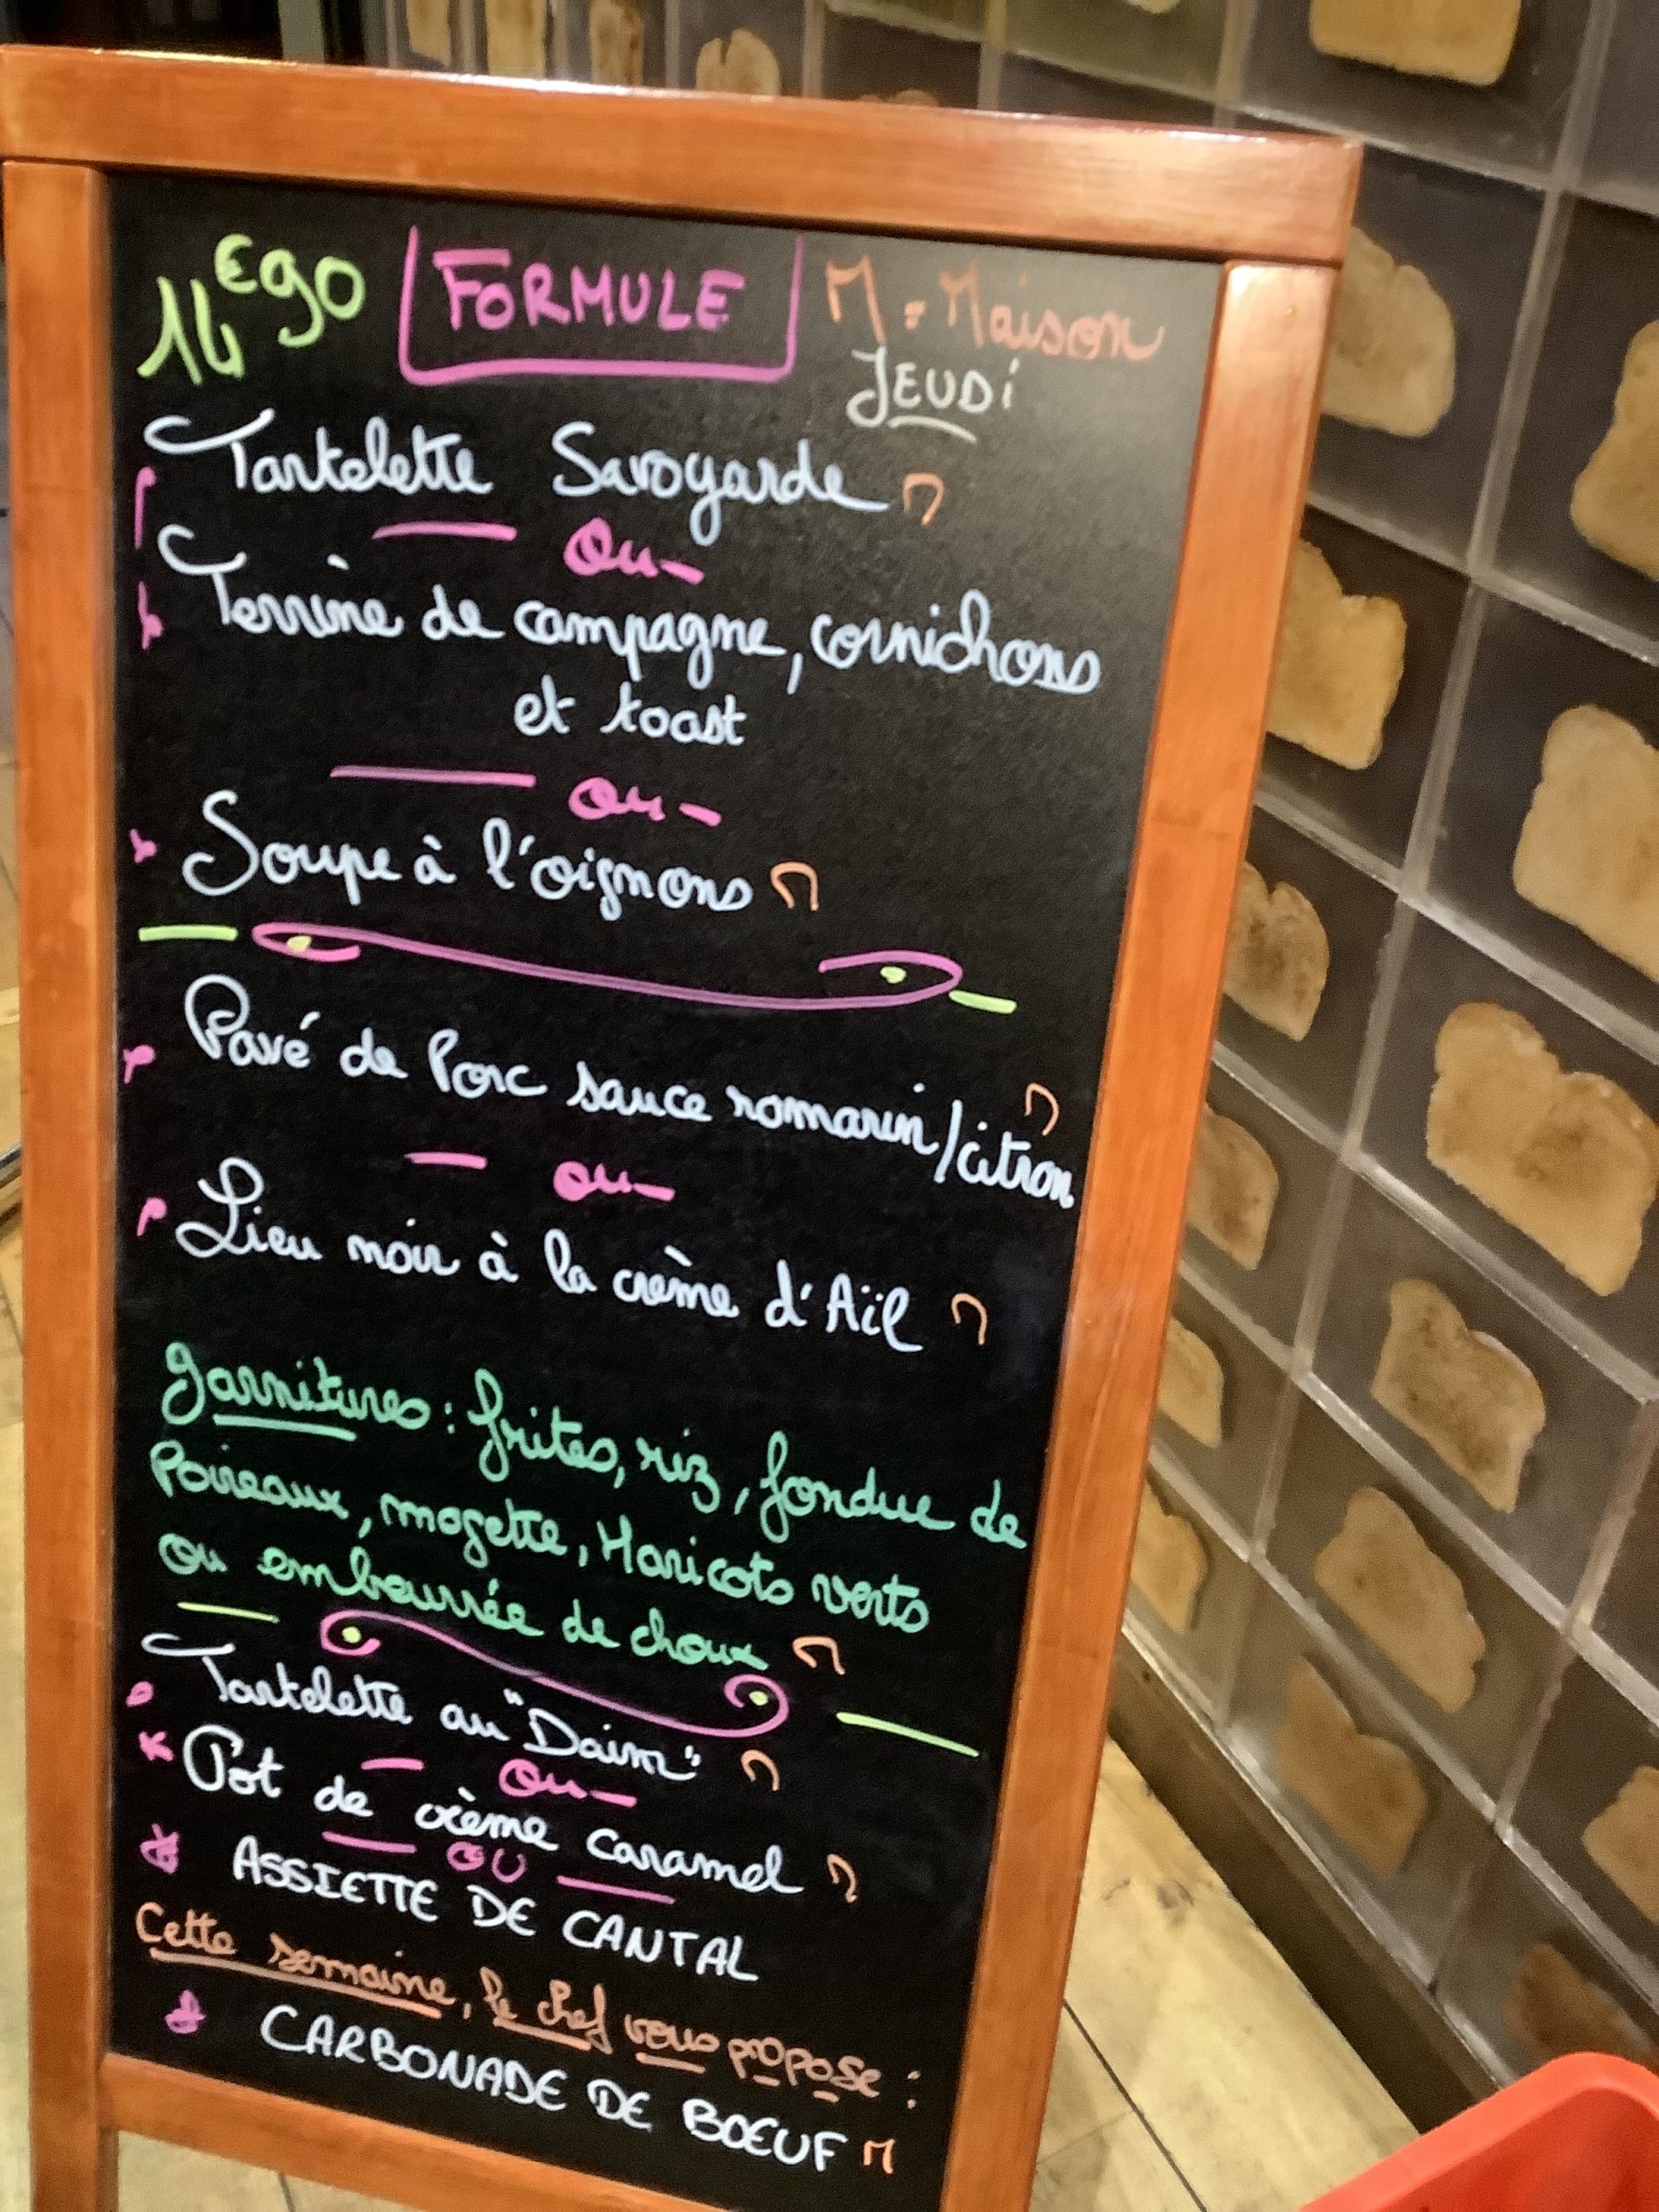 14€90 FORMULE M = Maison
JEUDi
Tartelette Savoyarde M
ou
Terrine de campagne, cornichons
et toast
ou
Soupe à l'oignons M
Pavé de Porc sauce romarin/citron M
ou
Lieu noir à la crème d'Aïl M
garnitures : frites, riz, fondue de
Poireaux, mogette, Haricots verts
ou embeurrée de choux M
Tartelette au "Daim" M
ou
Pot de crème caramel M
OU
ASSIETTE DE CANTAL
Cette semaine, le chef vous propose :
CARBONADE DE BOEUF M